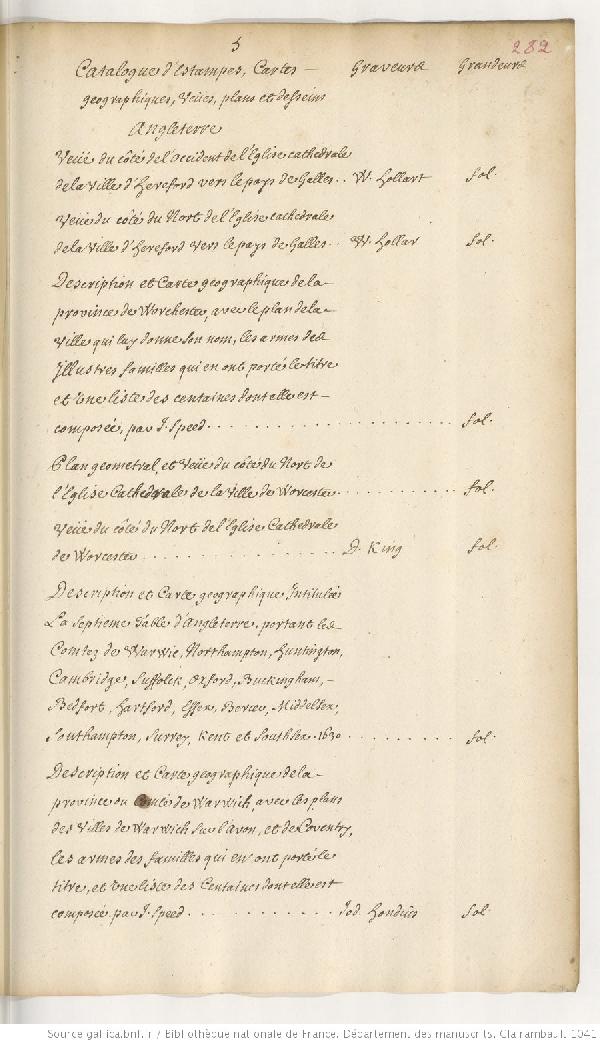 5
282
Catalogue d'Estampes, Cartes — Graveurs Grandeurs
geographiques, Veües, plans et desseins
Angleterre
Veüe du côté de l'occident de l'Eglise cathedrale
de la ville d'Hereford vers le pays de Galles . . W. Hollart fol.
Veüe du côté du Nort de l'Eglise cathedrale
de la ville d'Hereford vers le pays de Galles . . W. Hollar fol.
Description et Carte geographique de la
province de Worchester, avec le plan de la
Ville qui luy donne son nom, les armes des
Illustres familles qui en ont porté le titre
et une liste des centaines dont elle est
composée, par J. Speed . . . . . . . . . . fol.
Plan geometral, et Veüe du côté du Nort de
l'Eglise Cathedrale de la Ville de Worcester . . . . . . . . fol.
Veüe du côté du Nort de l'Eglise Cathedrale
de Worcester . . . . . . . . . . . . D. King fol.
Description et Carte geographique Intitulée
La Septieme Table d'Angleterre, portant les
Comtez de Warwic, Northampton, Huntington,
Cambridge, Suffolck, Oxford, Buckingham,
Bedfort, Hartford, Essex, Berce, Middelsex,
Southampton, Surrey, Kent et Southsex. 1630 . . . . . . . . fol.
Description et Carte geographique de la
province ou Comté de Warwich, avec les plans
des Villes de Warwich sur l'Avon, et de Coventry,
les armes des familles qui en ont porté le
titre, et une liste des Centaines dont elle est
composée par J. Speed . . . . . . . . . . Jod. Hondius fol.
Source gallica.bnf.fr / Bibliothèque nationale de France. Département des manuscrits. Clairambault 1041